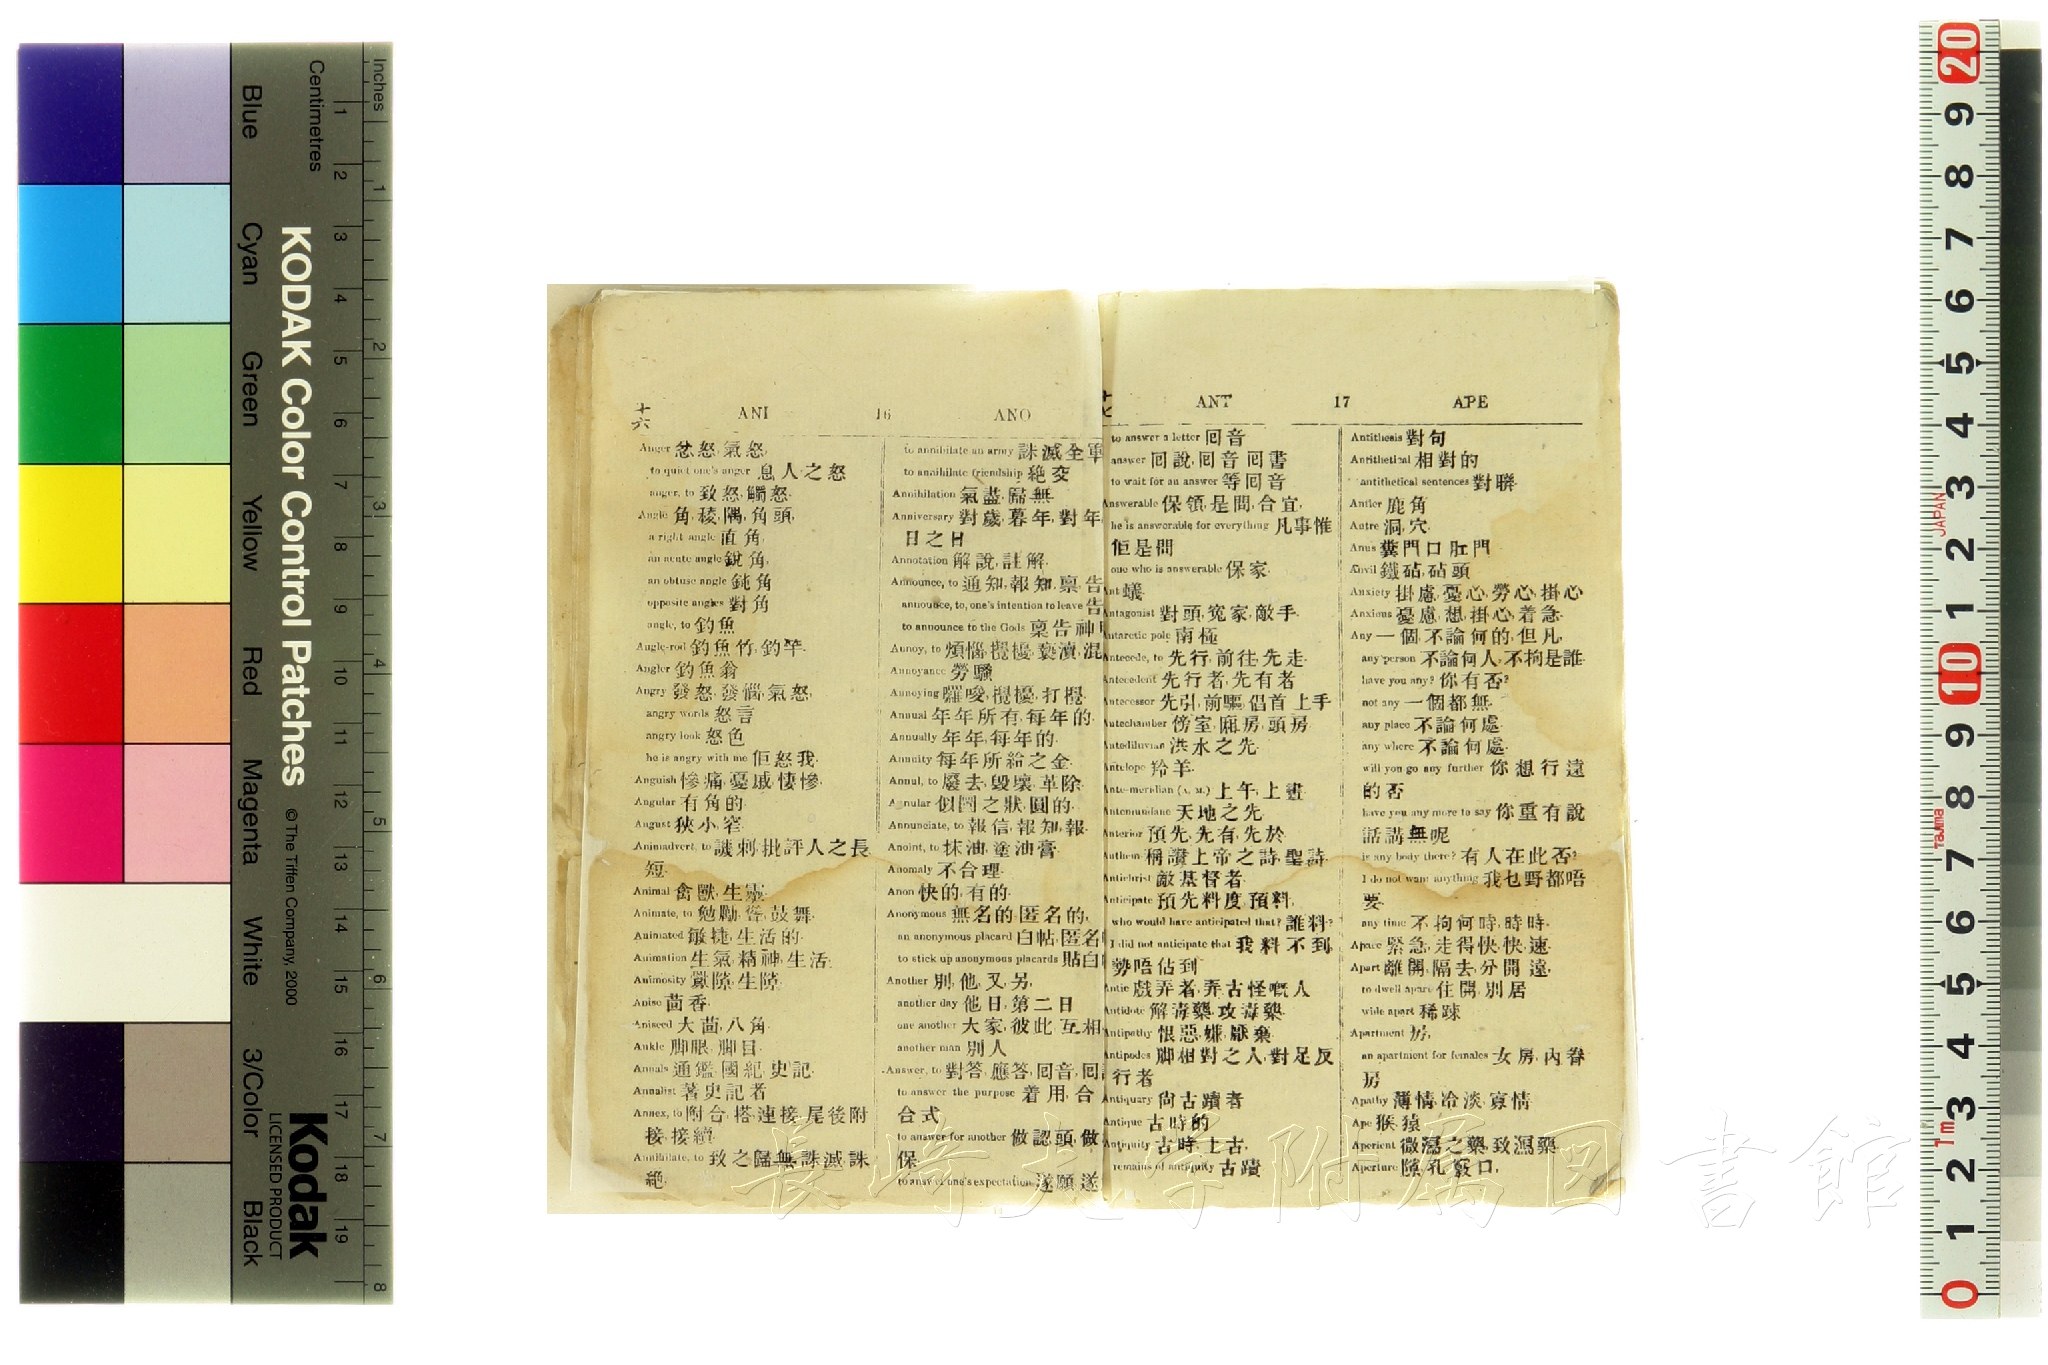 Inches
Centimetres
KODAK Color Control Patches
© The Tiffen Company, 2000
Kodak
LICENSED PRODUCT
Blue
Cyan
Green
Yellow
Red
Magenta
White
3/Color
Black
十六
ANI 16 ANO
Anger 忿怒,氣怒,
to quiet one's anger 息人之怒
anger, to 致怒,觸怒
Angle 角,稜,隅,角頭,
a right angle 直角,
an acute angle 銳角,
an obtuse angle 鈍角
opposite angles 對角
angle, to 釣魚
Angle-rod 釣魚竹,釣竿,
Angler 釣魚翁
Angry 發怒,發惱,氣怒,
angry words 怒言
angry look 怒色
he is angry with me 佢怒我,
Anguish 慘痛,憂戚,悽慘,
Angular 有角的,
August 狹小,窄,
Animadvert, to 譏刺,批評人之長
短,
Animal 禽獸,生靈
Animate, to 勉勵,聳,鼓舞,
Animated 敏捷,生活的,
Animation 生氣,精神,生活,
Animosity 釁隙,生隙,
Anise 茴香,
Aniseed 大茴,八角,
Ankle 脚眼,脚目,
Annals 通鑑,國紀,史記,
Annalist 著史記者
Annex, to 附合,搭,連接,尾後附
接,接續,
Annihilate, to 致之歸無,誅滅,誅
絕,
to annihilate an army 誅滅全軍
to annihilate friendship 絕交
Annihilation 氣盡,歸無,
Anniversary 對歲,暮年,對年,
日之日
Annotation 解說,註解,
Announce, to 通知,報知,禀告
announce, to, one's intention to leave 告
to announce to the Gods 禀告神
Annoy, to 煩惱,攪擾,褻瀆,混
Annoyance 勞騷
Annoying 囉唆,攪擾,打攪,
Annual 年年所有,每年的,
Annually 年年,每年的,
Annuity 每年所給之金,
Annul, to 廢去,毀壞,革除,
Annular 似圈之狀,圓的,
Annunciate, to 報信,報知,報
Anoint, to 抹油,塗油膏,
Anomaly 不合理,
Anon 快的,有的,
Anonymous 無名的,匿名的,
an anonymous placard 白帖,匿名
to stick up anonymous placards 貼白
Another 別,他,又,另,
another day 他日,第二日
one another 大家,彼此,互相
another man 別人
Answer, to 對答,應答,回音,回
to answer the purpose 着用,合
合式
to answer for another 做認頭,做
保,
to answer one's expectation 遂願,遂
ANT 17 APE
to answer a letter 回音
answer 回說,回音,回書
to wait for an answer 等回音
Answerable 保領,是問,合宜,
he is answerable for everything 凡事惟
佢是問
one who is answerable 保家,
Ant 蟻,
Antagonist 對頭,冤家,敵手,
Antarctic pole 南極
Antecede, to 先行,前往,先走,
Antecedent 先行者,先有者
Antecessor 先引,前驅,倡首,上手
Antechamber 傍室,廂房,頭房
Antediluvian 洪水之先,
Antelope 羚羊,
Ante-meridian (A. M.) 上午,上晝,
Antemundane 天地之先,
Anterior 預先,先有,先於,
Anthem 稱讚上帝之詩,聖詩,
Antichrist 敵基督者,
Anticipate 預先料度,預料,
who would have anticipated that? 誰料?
I did not anticipate that 我料不到,
勢唔估到
Antic 戲弄者,弄古怪嘅人
Antidote 解毒藥,攻毒藥,
Antipathy 恨惡,嫌,厭棄,
Antipodes 脚相對之人,對足反
行者
Antiquary 尙古蹟者
Antique 古時的
Antiquity 古時,上古,
remains of antiquity 古蹟
Antithesis 對句
Antithetical 相對的
antithetical sentences 對聯,
Antler 鹿角
Antre 洞,穴,
Anus 糞門口,肛門
Anvil 鐵砧,砧頭
Anxiety 掛慮,憂心,勞心,掛心
Anxious 憂慮,想,掛心,着急,
Any 一個,不論何的,但凡,
any person 不論何人,不拘是誰,
have you any? 你有否?
not any 一個都無,
any place 不論何處,
any where 不論何處,
will you go any further 你想行遠
的否
have you any more to say 你重有說
話講無呢
is any body there? 有人在此否?
I do not want anything 我乜野都唔
要,
any time 不拘何時,時時,
Apace 緊急,走得快,快速,
Apart 離開,隔去,分開,遠,
to dwell apart 住開,別居
wide apart 稀踈
Apartment 房,
an apartment for females 女房,內眷
房
Apathy 薄情,冷淡,寡情
Ape 猴,猿,
Aperient 微瀉之藥,致瀉藥,
Aperture 隙,孔,竅,口,
JAPAN
Tajima
1m
長崎大学附属図書館